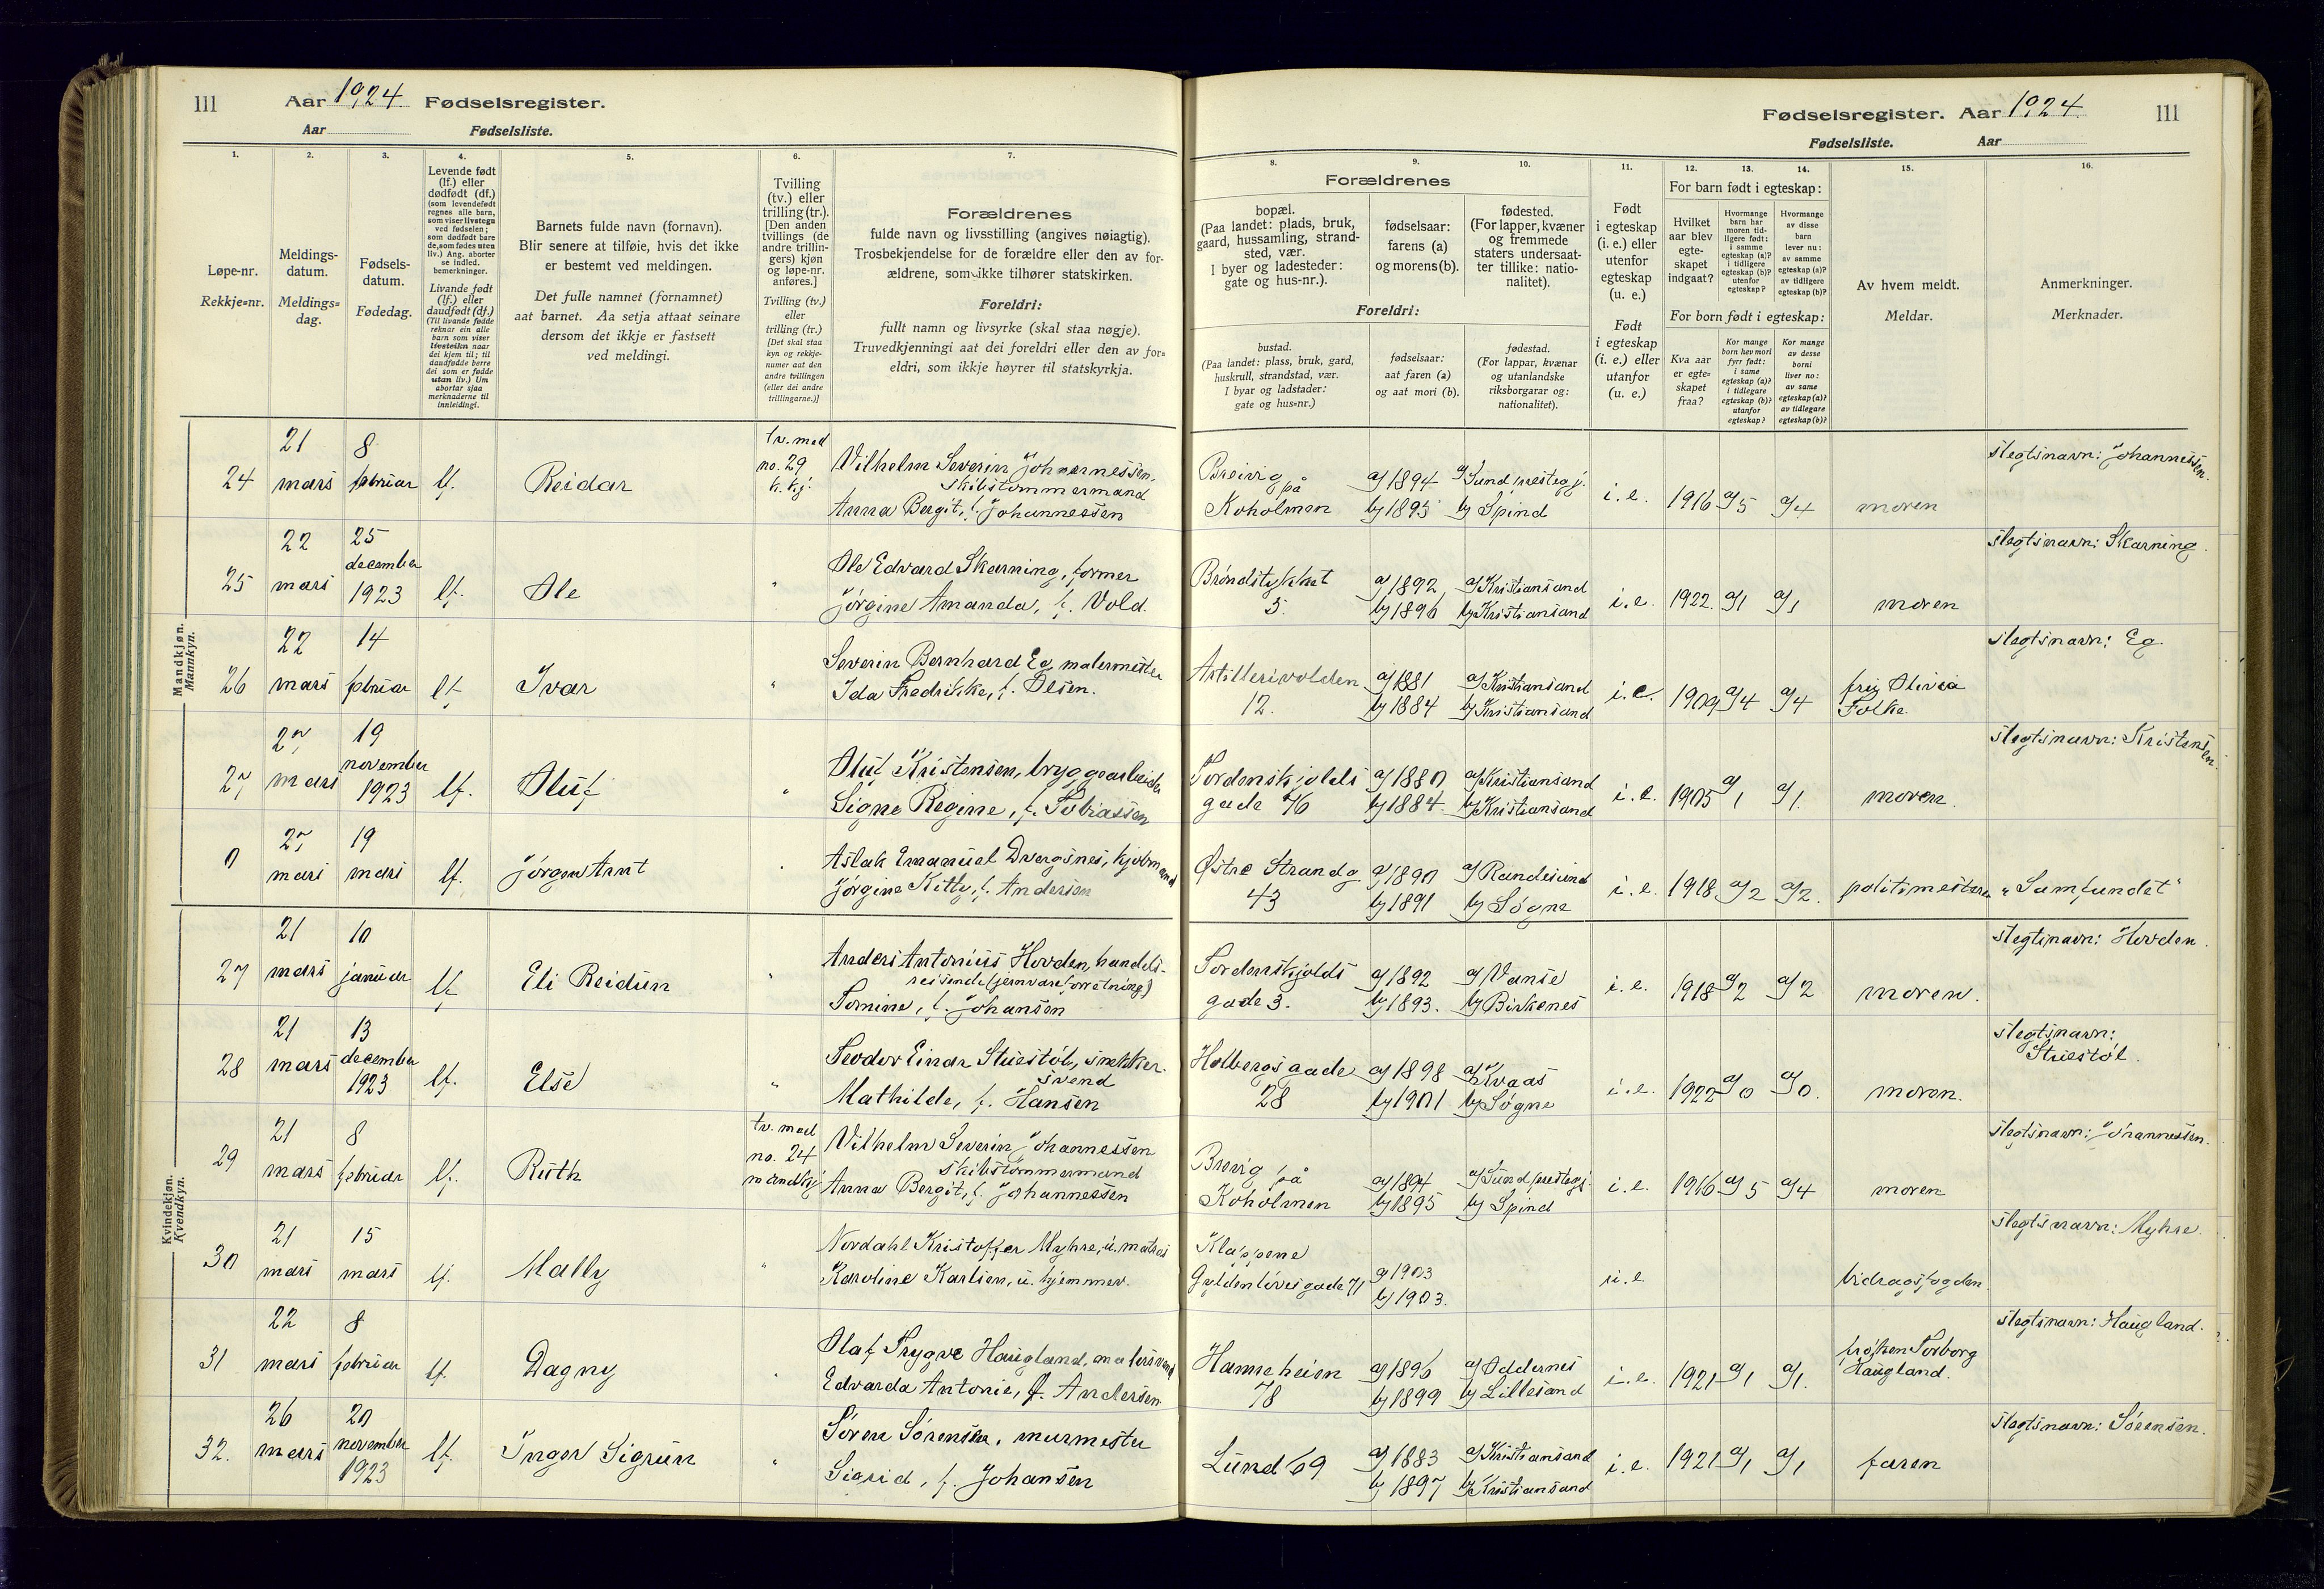 111 Aar 1924. Fødselsregister.
Aar Fødselsliste.
1. 2. 3. 4. 5. 6. 7.
Løpe-nr.
Rekkje=nr.
Meldings-
datum.
Meldings=
dag.
Fødsels-
datum.
Fødedag.
Levende født
(lf.) eller
dødfødt (df.)
(som levendefødt
regnes alle barn,
som viser livstegn
ved fødselen;
som dødfødt bare
de, som fødes uten
liv.) Ang. aborter
se indled.
bemerkninger.
Livande født
(lf.) eller
daudfødt (df.)
(Til livande fødde
reknar ein alle
barn som viser
livsteikn naar
dei kjem til; til
daudfødde berre
dei som er fødde
utan liv.) Um
abortar sjaa
merknaderne til
innleidingi.
Barnets fulde navn (fornavn).
Blir senere at tilføie, hvis det ikke
er bestemt ved meldingen.
Det fulle namnet (fornamnet)
aat barnet. Aa setja attaat seinare
dersom det ikkje er fastsett
ved meldingi.
Tvilling
(tv.) eller
trilling (tr.).
[Den anden
tvillings (de
andre trillin-
gers) kjøn
og løpe-nr.
anføres.]
Tvilling (tv.)
eller
trilling (tr.)
[Det skal staa
kyn og rekkje-
numer aat den
andre tvillingen
(eller dei andre
trillingarne.)]
Forældrenes
fulde navn og livsstilling (angives nøiagtig).
Trosbekjendelse for de forældre eller den av for-
ældrene, som ikke tilhører statskirken.
Foreldri:
fullt namn og livsyrke (skal staa nøgje).
Truvedkjenningi aat dei foreldri eller den av for=
eldri, som ikkje høyrer til statskyrkja.
Mandkjøn.
Mannkyn.
24 21 mars 8 februar lf. Reidar tv. med no. 29 k.kj. Vilhelm Severin Johannessen, skibstømmermand
Anna Bergit, f. Johannessen
25 22 mars 25 december 1923 lf. Ole " Ole Edvard Skarning, former
Jørgine Amanda, f. Vold.
26 22 mars 14 februar lf. Ivar " Severin Bernhard Eg, malermester
Ida Fredrikke, f. Olsen.
27 27 mars 19 november 1923 lf. Oluf " Oluf Kristensen, bryggearbeider
Signe Regine, f. Tobiassen
0 27 mars 19 mars lf. Jørgen Arnt " Aslak Emanuel Dvergsnes, kjøbmand
Jørgine Kitty, f. Andersen
Kvindekjøn.
Kvendkyn.
27 21 mars 10 januar lf. Eli Reidun " Anders Antonius Hovden, handels-
reisende (jernvareforretning)
Tomine, f. Johansen
28 21 mars 13 december 1923 lf. Else " Teodor Einar Stuestøl, snekker-
svend
Mathilde, f. Hansen
29 21 mars 8 februar lf. Ruth tv. med no. 24 mandkj. Vilhelm Severin Johannessen
skibstømmermand
Anna Bergit, f. Johannessen
30 21 mars 15 mars lf. Mally " Nordahl Kristoffer Myhre, u. matros
Karoline Karlsen, u. hjemmev.
31 22 mars 8 februar lf. Dagny " Olaf Trygve Haugland, malersvend
Edvarda Antonie, f. Andersen
32. 26 mars 20 november 1923 lf. Inger Sigrun " Søren Sørensen, murmester
Sigrid, f. Johansen
Fødselsregister. Aar 1924. 111
Fødselsliste. Aar
8. 9. 10. 11. 12. 13. 14. 15. 16.
Forældrenes
bopæl.
(Paa landet: plads, bruk,
gaard, hussamling, strand-
sted, vær.
I byer og ladesteder:
gate og hus-nr.).
fødselsaar:
farens (a)
og morens (b).
fødested.
(For lapper, kvæner
og fremmede
staters undersaat-
ter tillike: natio-
nalitet).
Foreldri:
bustad.
(Paa landet: plass, bruk, gard,
huskrull, strandstad, vær.
I byar og ladstader:
gate og hus=nr.)
fødselsaar:
aat faren (a)
og aat mori (b).
fødestad.
(For lappar, kvænar
og utanlandske
riksborgarar og:
nationalitet).
Født
i egteskap
(i. e.) eller
utenfor
egteskap
(u. e.)
Født
i egteskap
(i. e.) eller
utanfor
(u. e.)
For barn født i egteskap:
Hvilket
aar blev
egte-
skapet
indgaat?
Hvormange
barn har
moren tid-
ligere født:
i samme
egteskap (a)?
i tidligere
egteskap (b)?
utenfor
egteskap?
Hvormange
av disse
barn
lever nu:
av samme
egteskap (a)?
av tidligere
egteskap (b)?
For born født i egteskap:
Kva aar
er egte=
skapet
fraa?
Kor mange
born hev mori
fyrr født:
i same
egteskap (a)?
i tidlegare
egteskap (b)?
utanfor
egteskap?
Kor mange
av desse
borni
liver no:
av same
egteskap (a)?
av tidlegare
egteskap (b)?
Av hvem meldt.
Meldar.
Anmerkninger.
Merknader.
Breivig på Koholmen a) 1894 b) 1895 a) Sund prestegj. b) Spind i. e. 1916 a) 5 a) 4 moren slegtsnavn: Johannessen.
Brøndstykket 5. a) 1892 b) 1896 a) Kristiansand b) Kristiansand i. e. 1922. a) 1 a) 1 moren slegtsnavn: Skarning.
Artillerivolden 12. a) 1881 b) 1884 a) Kristiansand b) Kristiansand i. e. 1909 a) 4 a) 4 Folke. slegtsnavn: Eg.
Tordenskjolds gade 76 a) 1880 b) 1884. a) Kristiansand b) Kristiansand i. e. 1905 a) 1 a) 1. moren. slegtsnavn: Kristensen.
Østre Strandg. 43 a) 1890 b) 1891 a) Randesund b) Søgne i. e. 1918 a) 2 a) 2. politimesteren "Samfundet"
Tordenskjolds gade 3. a) 1892 b) 1893. a) Vanse b) Birkenes i. e. 1918 a) 2 a) 2 moren. slegtsnavn: Hovden.
Holbergs gade 28 a) 1898 b) 1901 a) Kvaas b) Søgne i. e. 1922 a) 0 a) 0. moren. slegtsnavn: Stuestøl.
Brevig på Koholmen a) 1894 b) 1895 a) Sund prestegj. b) Spind i. e. 1916 a) 5 a) 4 moren slegtsnavn: Johannessen.
Klappene Gyldenløves gade 71 a) 1903 b) 1903. u. e bidragsfogden. slegtsnavn: Myhre.
Hanneheien 78 a) 1896 b) 1899 a) Oddernes b) Lillesand i. e. 1921 a) 1 a) 1. frøken Torborg Haugland. slegtsnavn: Haugland.
Lund 69 a) 1883 b) 1897 a) Kristiansand b) Kristiansand i. e. 1921 a) 1 a) 1 faren slegtsnavn: Sørensen.